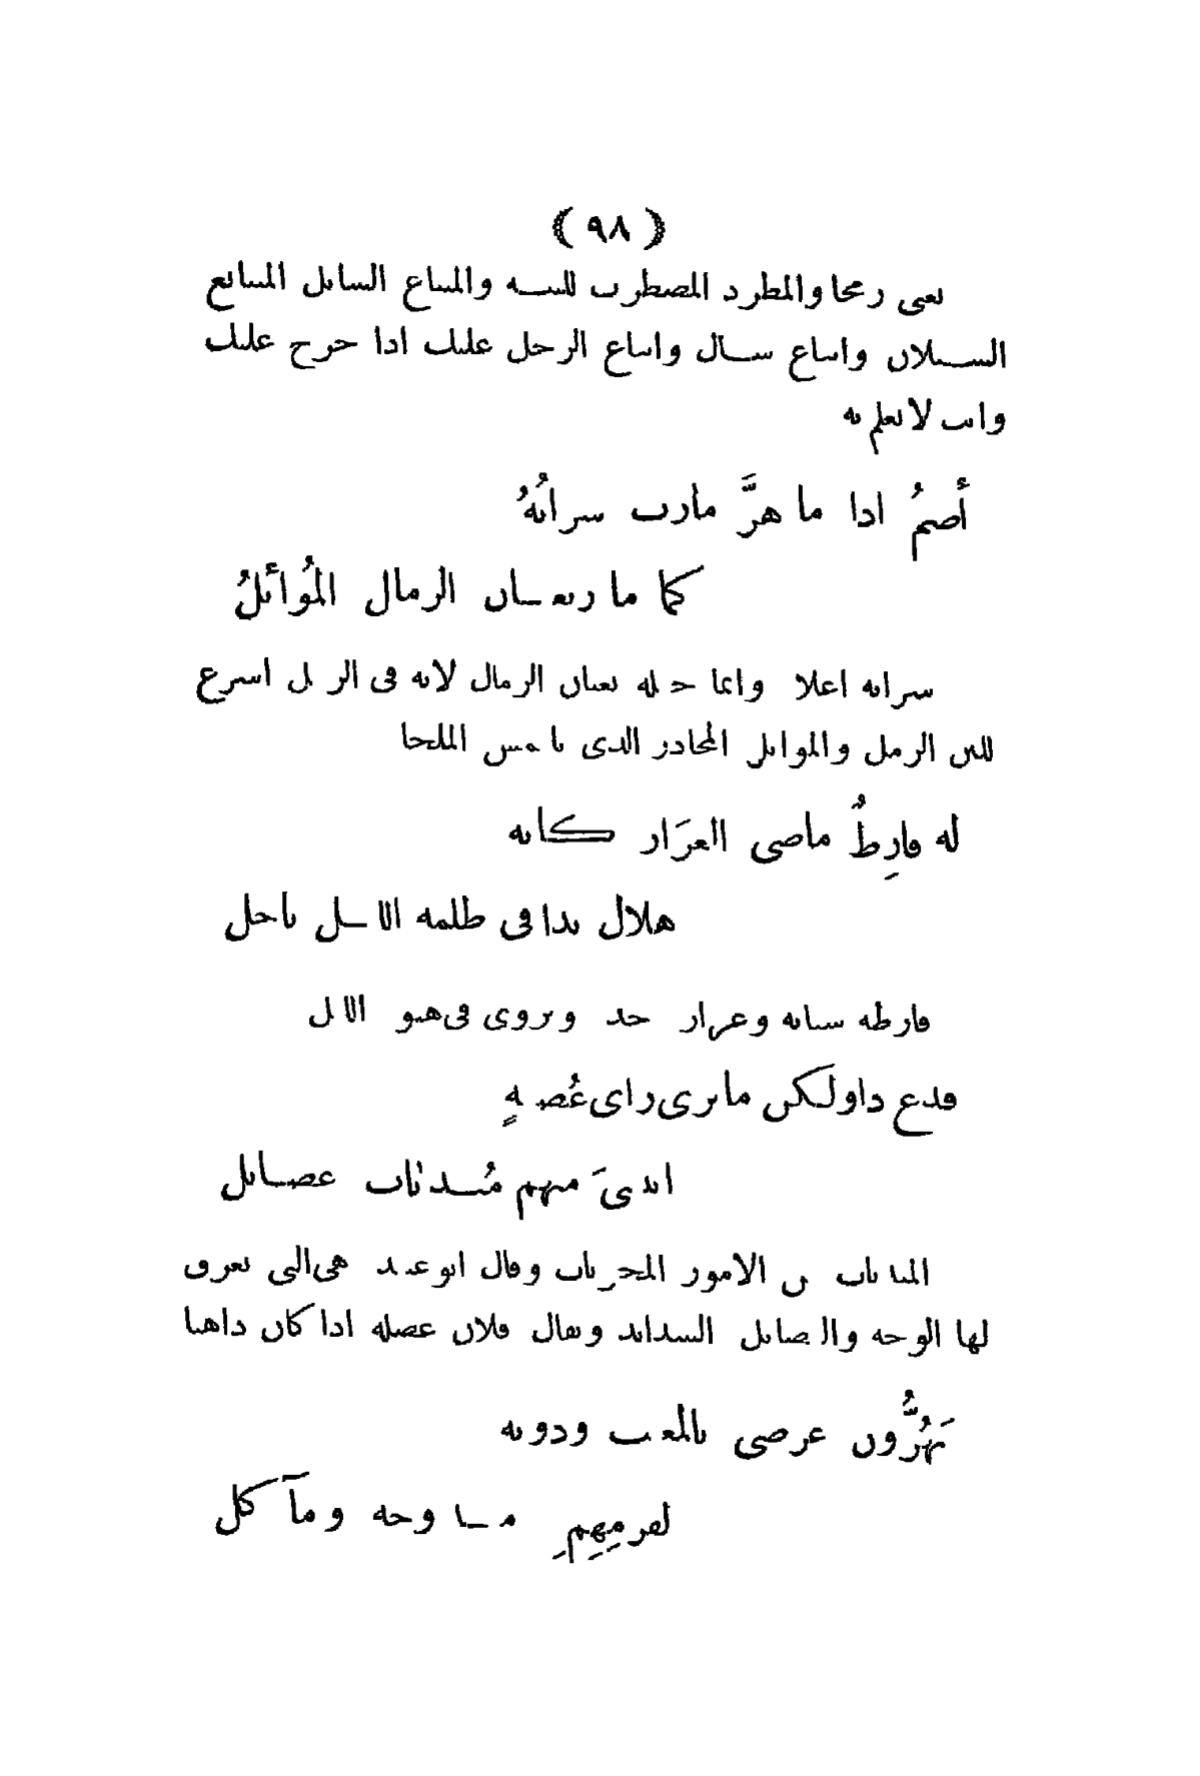 ﴿ ٩٨ ﴾
يعني رمحا والمطرد المضطرب للينه والمنباع السائل المتتابع
السيلان وانباع سال وانباع الرجل عليك اذا خرج عليك
وانت لا تعلم به
أصمُ اذا ما هزَّ مارت سراتُهُ
كما مار ثعبان الرمال المُوائلُ
سراته اعلاه وانما جعله ثعبان الرمال لانه في الرمل اسرع
للين الرمل والموائل المحاذر الذي يلتمس الملجا
له فارِطٌ ماضي الغرَار كانه
هلال بدا في ظلمة الليل ناحل
فارطه سنانه وغرار حد ويروى في هبوة الليل
فدع ذا ولكن ما ترى راى عُصبةٍ
اتتنيَ منهم مُنديات عضائل
المنديات من الامور المخزيات وقال ابو عبيد هي التي يعرق
لها الوجه والعضائل الشدائد ويقال فلان عضلة اذا كان داهيا
يَهُزُّون عرضي بالمغيب ودونه
لقرمِهِمِ مندوحة ومآكل